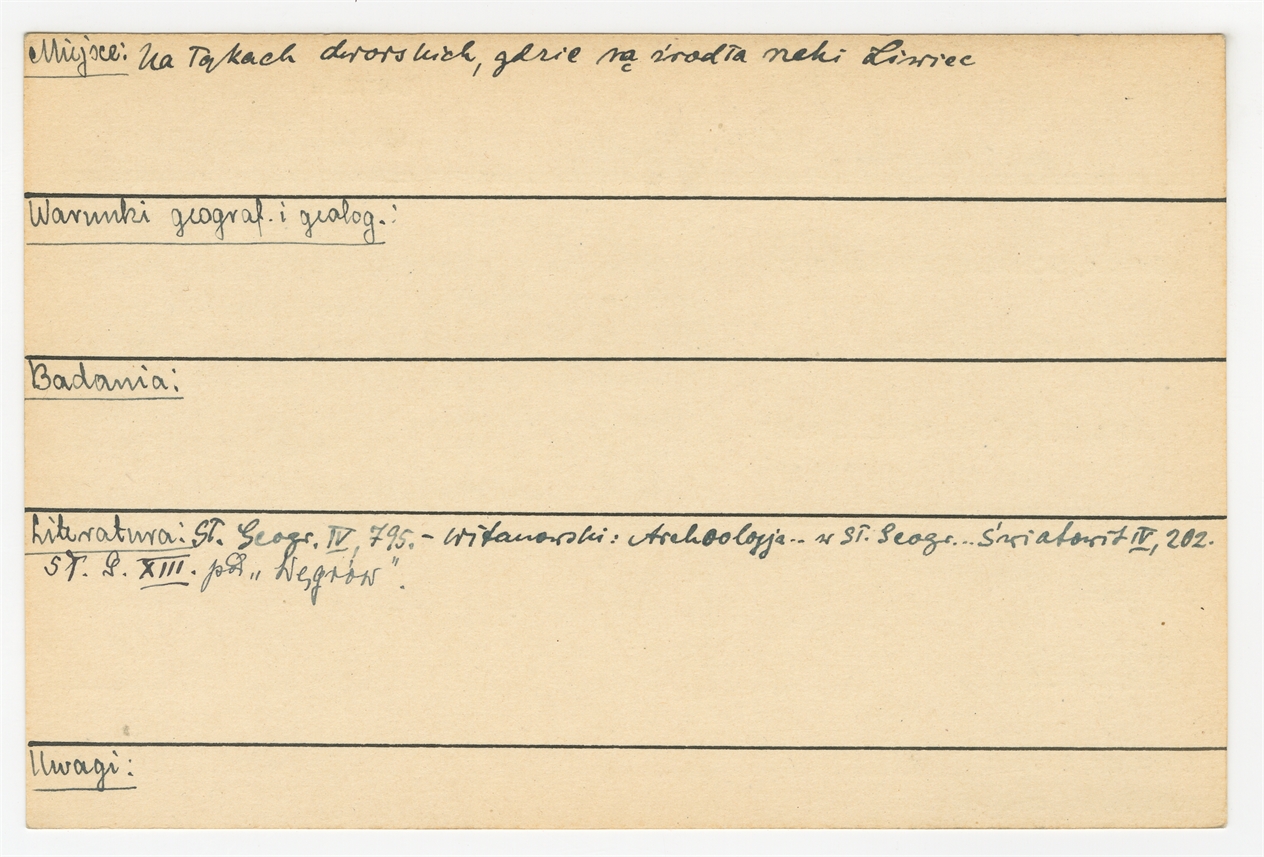 Miejsce: Na łąkach dworskich, gdzie są źrodła rzeki Liwiec
Warunki geograf. i geolog.:
Badania:
Literatura: Sł. Geogr. IV, 795. - Witanowski: Archeologja.. w Sł. Geogr... Światowit IV, 202.
Sł. G. XIII. pod „Węgrów".
Uwagi: